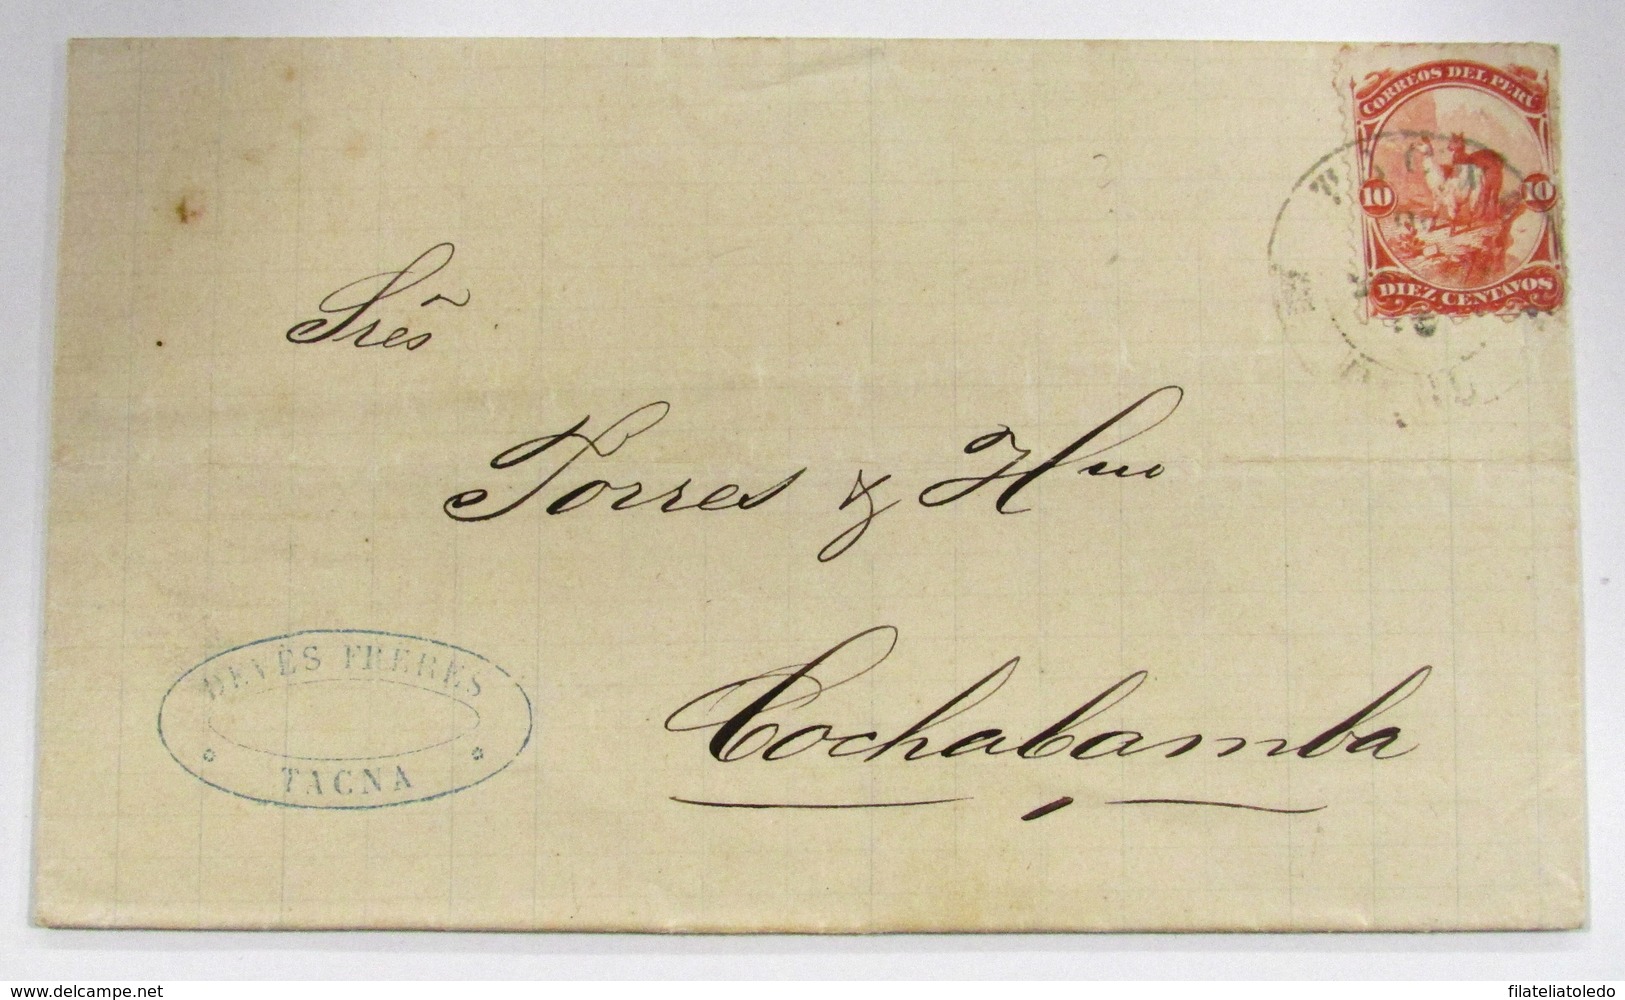 CORREOS DEL PERÚ
10 10
DIEZ CENTAVOS
TACNA
PERU
Sres
Torres & Hno
Cochabamba
DEVÈS FRÈRES
TACNA
www.delcampe.net
filateliatoledo